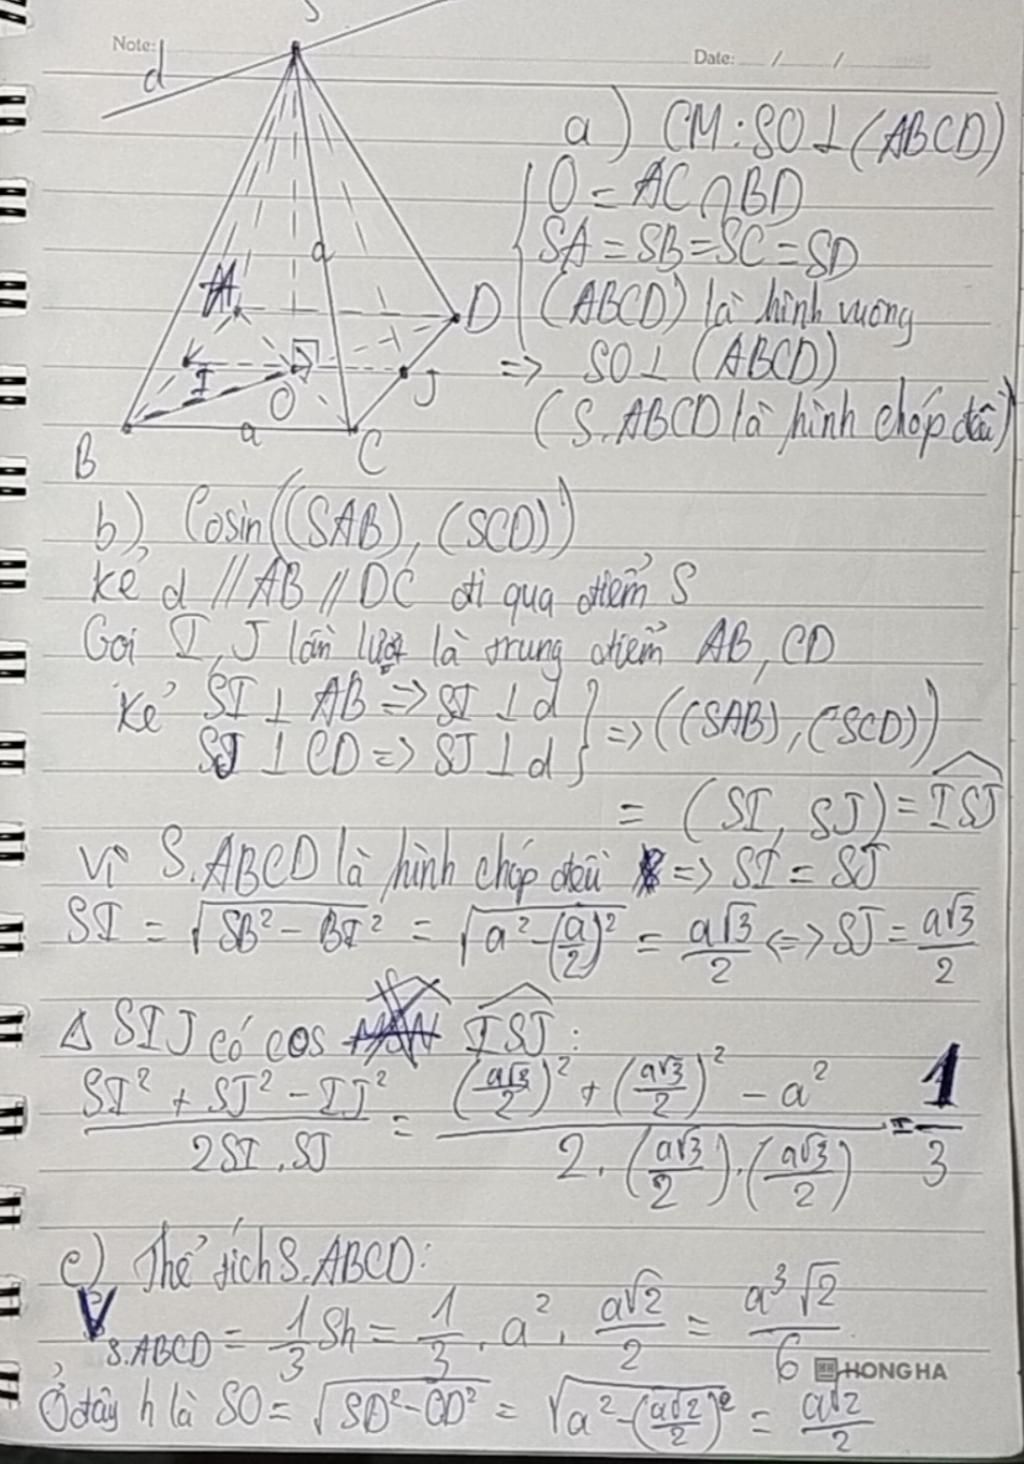 S
Note:
Date: / /
d
a) CM: SO ⊥ (ABCD)
O = AC ∩ BD
SA = SB = SC = SD
(ABCD) là hình vuông
=> SO ⊥ (ABCD)
(S.ABCD là hình chóp đều)
a
A
D
I
O
J
B
a
C
b) Cosin((SAB), (SCD))
Kẻ d // AB // DC đi qua điểm S
Gọi I, J lần lượt là trung điểm AB, CD
Kẻ SI ⊥ AB => SI ⊥ d
SJ ⊥ CD => SJ ⊥ d } => ((SAB), (SCD))
= (SI, SJ) = ISJ
Vì S.ABCD là hình chóp đều => SI = SJ
SI = √(SB² - BI²) = √(a² - (a/2)²) = a√3/2 <=> SJ = a√3/2
Δ SIJ có cos ISJ:
(SI² + SJ² - IJ²)/(2SI.SJ) = ((a√3/2)² + (a√3/2)² - a²)/(2.(a√3/2).(a√3/2)) = 1/3
c) Thể tích S.ABCD:
V S.ABCD = 1/3 Sh = 1/3 . a² . a√2/2 = a³√2/6
HONG HA
Ở đây h là SO = √(SD² - OD²) = √(a² - (a√2/2)²) = a√2/2